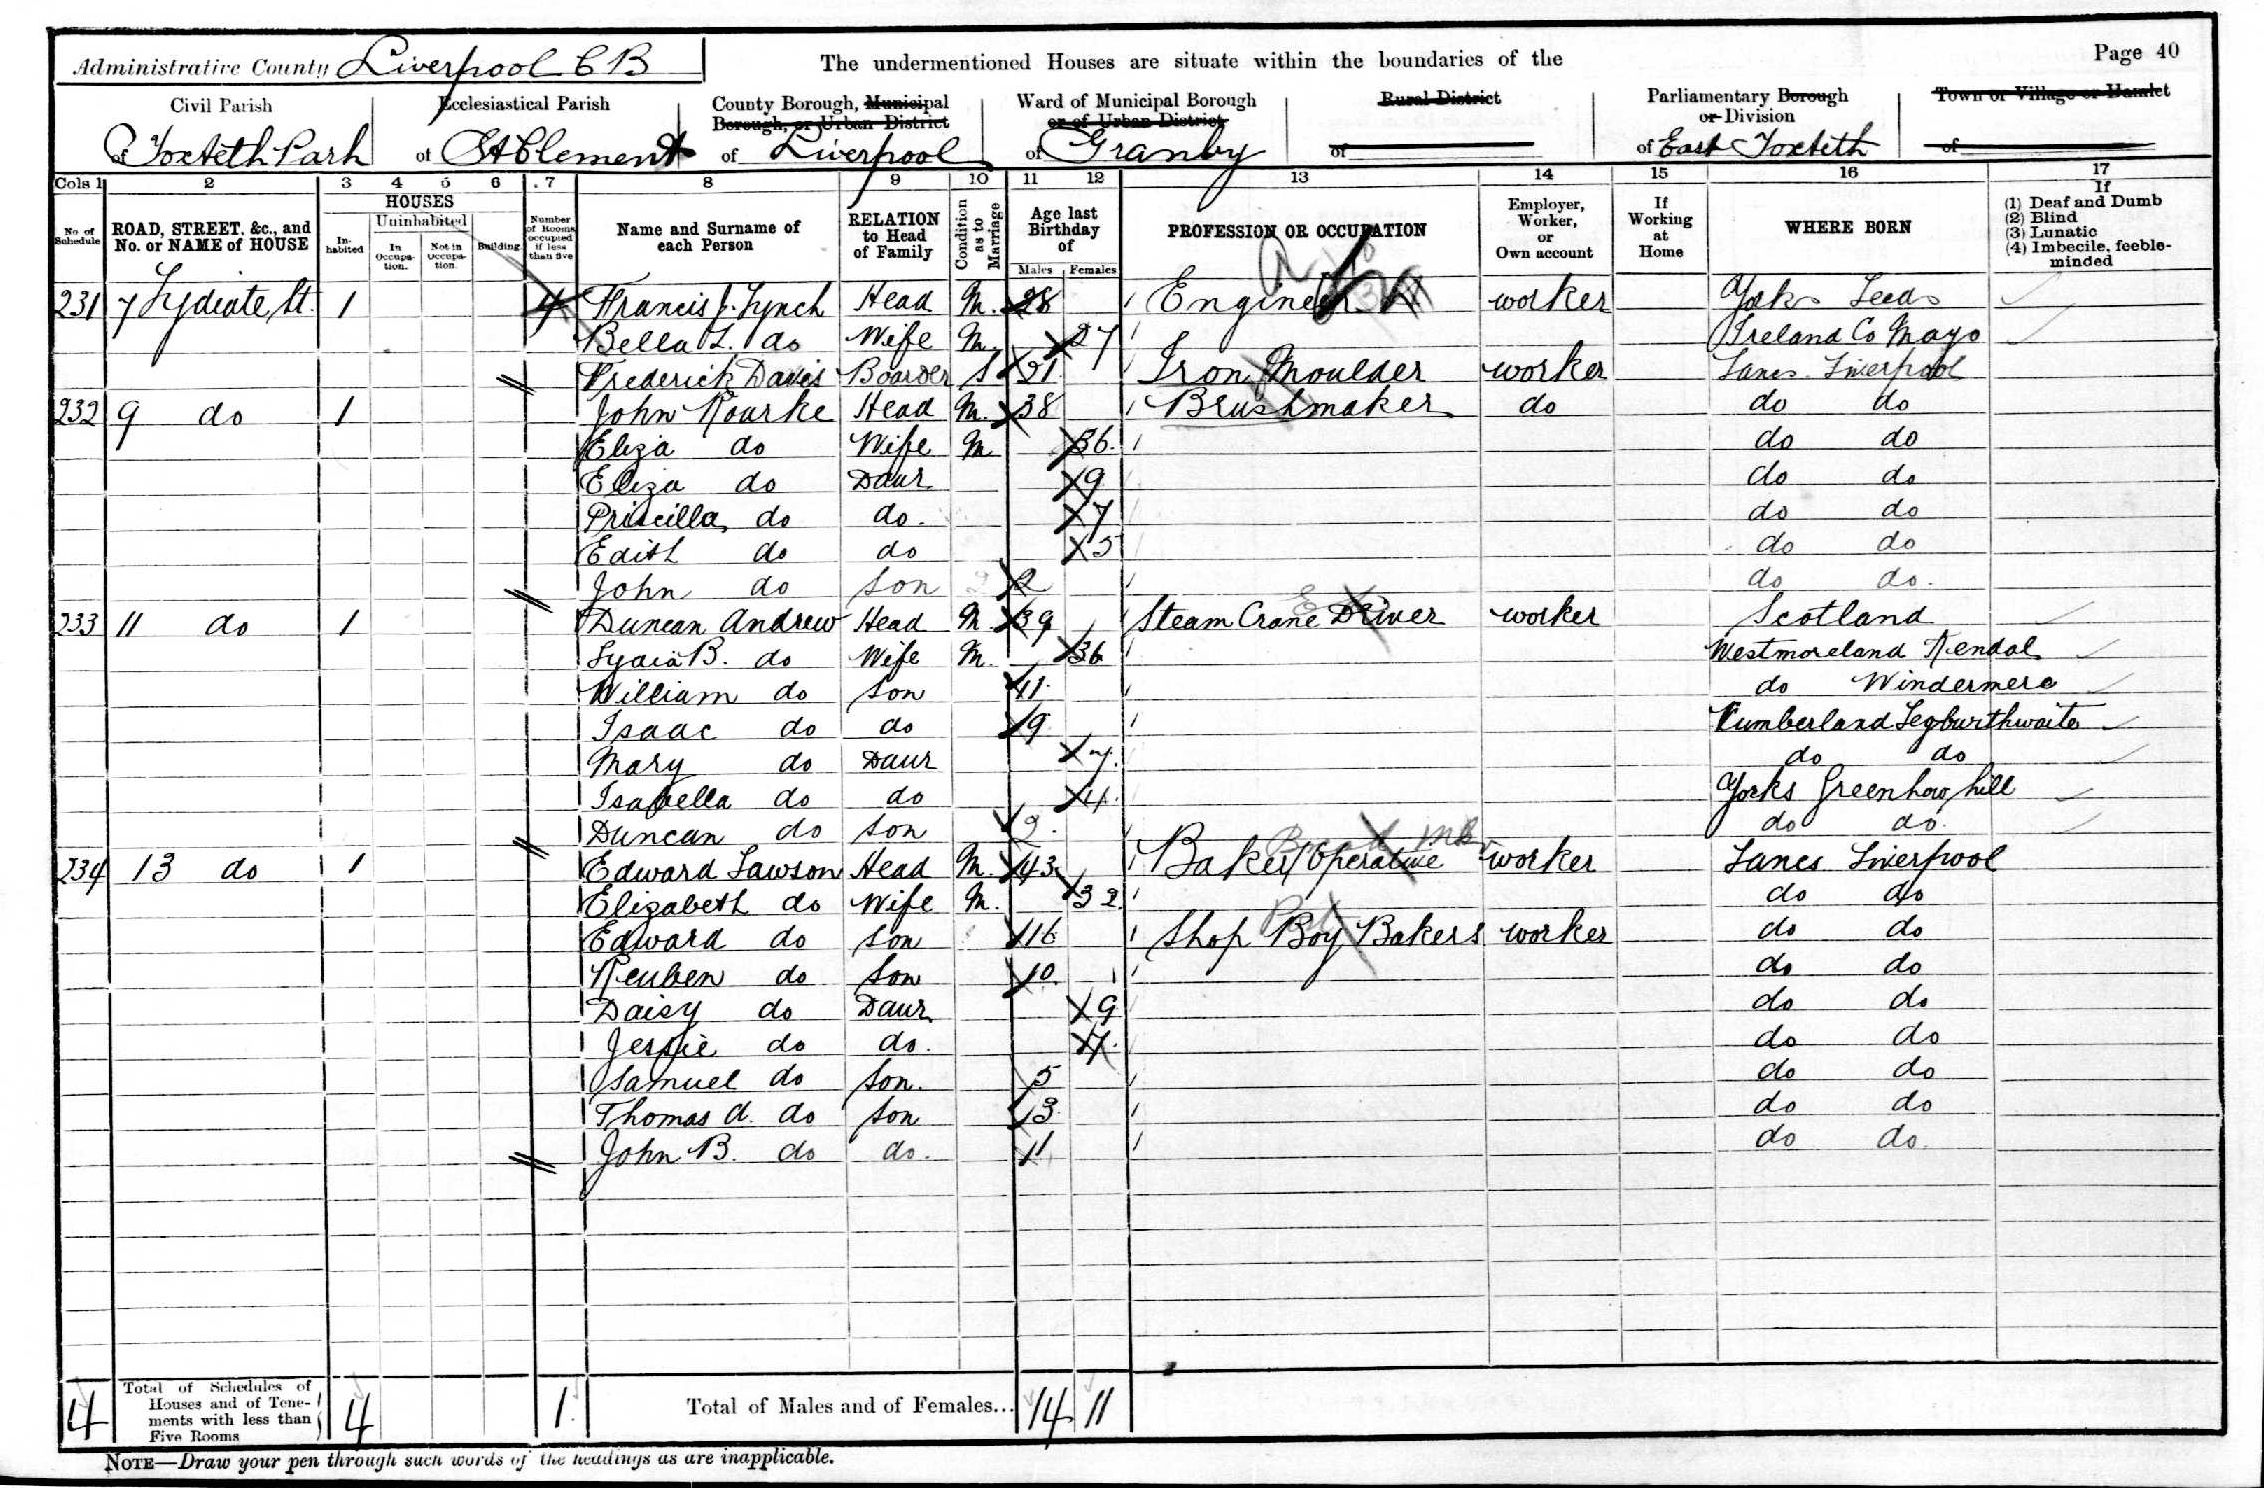 Administrative County Liverpool C B The undermentioned Houses are situate within the boundaries of the Page 40
Civil Parish Ecclesiastical Parish County Borough, Municipal Borough, or Urban District Ward of Municipal Borough or of Urban District Rural District Parliamentary Borough or Division Town or Village or Hamlet
of Toxteth Park of St Clement of Liverpool of Granby of of East Toxteth of
Cols 1 2 3 4 5 6 7 8 9 10 11 12 13 14 15 16 17
No. of Schedule
ROAD, STREET, &c., and No. or NAME of HOUSE
HOUSES
Inhabited
Uninhabited
In Occupation.
Not in Occupation.
Building.
Number of Rooms occupied if less than five
Name and Surname of each Person
RELATION to Head of Family
Condition as to Marriage
Age last Birthday of
Males Females
PROFESSION OR OCCUPATION
Employer, Worker, or Own account
If Working at Home
WHERE BORN
If
(1) Deaf and Dumb
(2) Blind
(3) Lunatic
(4) Imbecile, feeble-minded
231 7 Lydiate St. 1 4 Francis J. Lynch Head M. 28 Engineer worker Yorks Leeds
Bella L. do Wife M. 27 Ireland Co Mayo
Frederick Davis Boarder S 21 Iron Moulder worker Lancs. Liverpool
232 9 do 1 John Rourke Head M. 38 Brushmaker do do do
Eliza do Wife M 36 do do
Eliza do Daur 9 do do
Priscilla do do. 7 do do
Edith do do 5 do do
John do son 2 do do.
233 11 do 1 Duncan Andrew Head M. 39 Steam Crane Driver worker Scotland
Lydia B. do Wife M. 36 Westmoreland Kendal
William do son 11 do Windermere
Isaac do do 9 Cumberland Legburthwaite
Mary do Daur 7 do do
Isabella do do 4 Yorks Greenhow hill
Duncan do son 2 do do.
234 13 do 1 Edward Lawson Head M. 43 Baker / Operative worker Lancs Liverpool
Elizabeth do Wife M. 32 do do
Edward do son 16 Shop Boy Bakers worker do do
Reuben do Son 10 do do
Daisy do Daur 9 do do
Jessie do do. 7 do do
Samuel do son. 5 do do
Thomas A. do son 3 do do
John B. do do. 1 do do.
4 Total of Schedules of Houses and of Tenements with less than Five Rooms 4 1 Total of Males and of Females... 14 11
NOTE—Draw your pen through such words of the headings as are inapplicable.